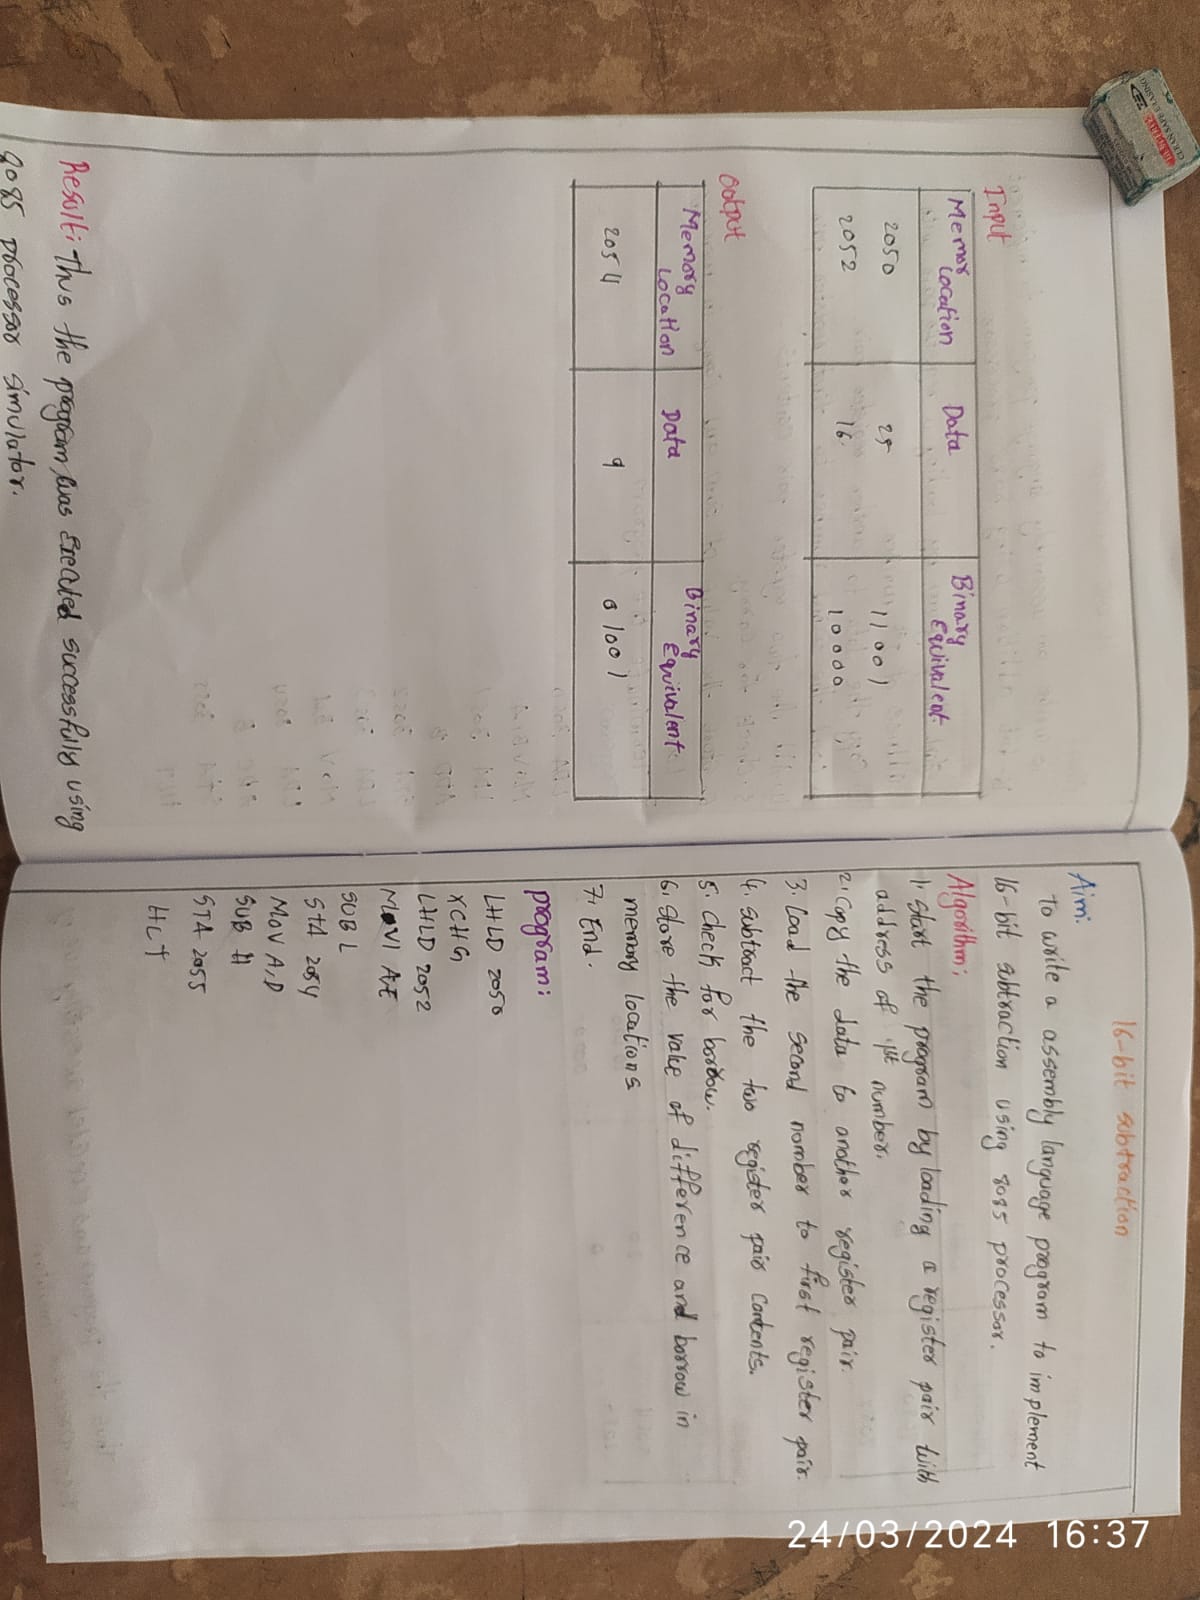 Input
Memor Location Data Binary Equivalent
2050 25 11001
2052 16 10000
Output
Memory Location Data Binary Equivalent
2054 9 01001
Result:- Thus the program was executed successfully using
8085 processor simulator.
16-bit subtraction
Aim:
To write a assembly language program to implement
16-bit subtraction using 8085 processor.
Algorithm:
1. start the program by loading a register pair with
address of 1st number.
2. Copy the data to another register pair.
3. Load the second number to first register pair.
4. subtract the two register pair contents.
5. check for borrow.
6. store the value of difference and borrow in
memory locations
7. End.
program:
LHLD 2050
XCHG
LHLD 2052
MOVI A,E
SUB L
STA 2054
MOV A,D
SUB H
STA 2055
HLT
CLEAN SAFE ERASING
24/03/2024 16:37